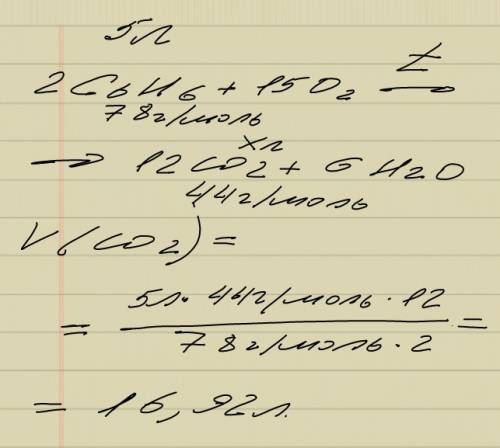 5л
2C6H6 + 15O2 t→
78г/моль
xл
→ 12CO2 + 6H2O
44г/моль
V(CO2) =
= 5л · 44г/моль · 12 / 78г/моль · 2 =
= 16,92л.